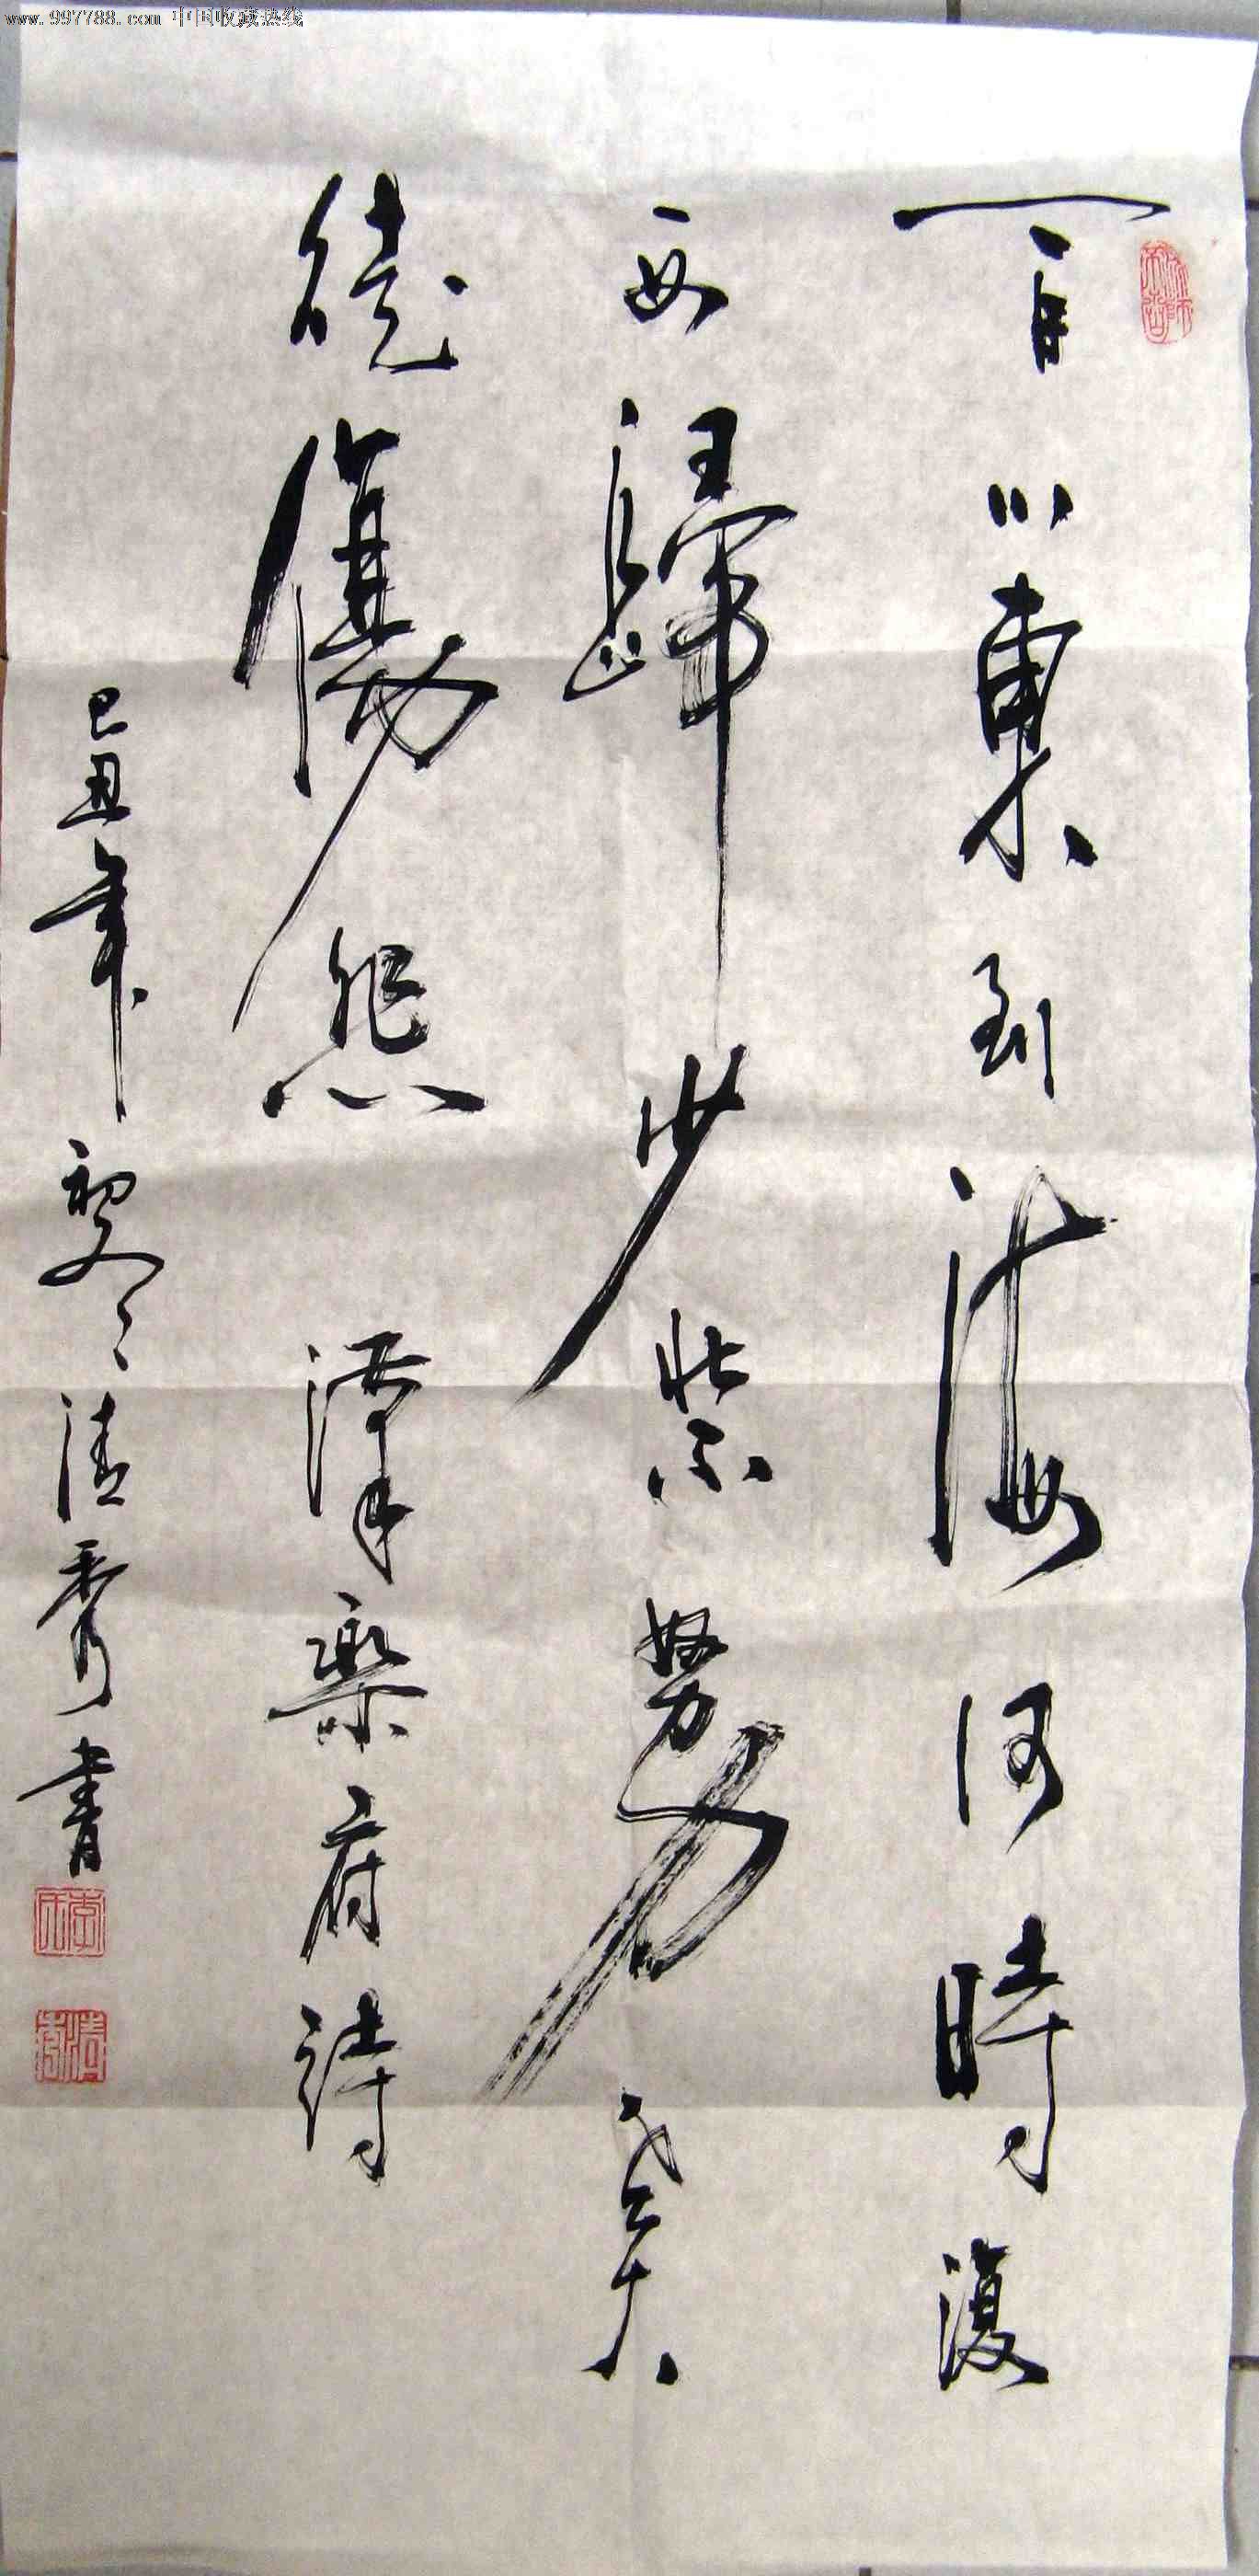 www.997788.com 中国收藏热线
百川東到海何時復
西歸少壯不努力老大
徒傷悲 漢樂府詩
己丑年初冬清秀書